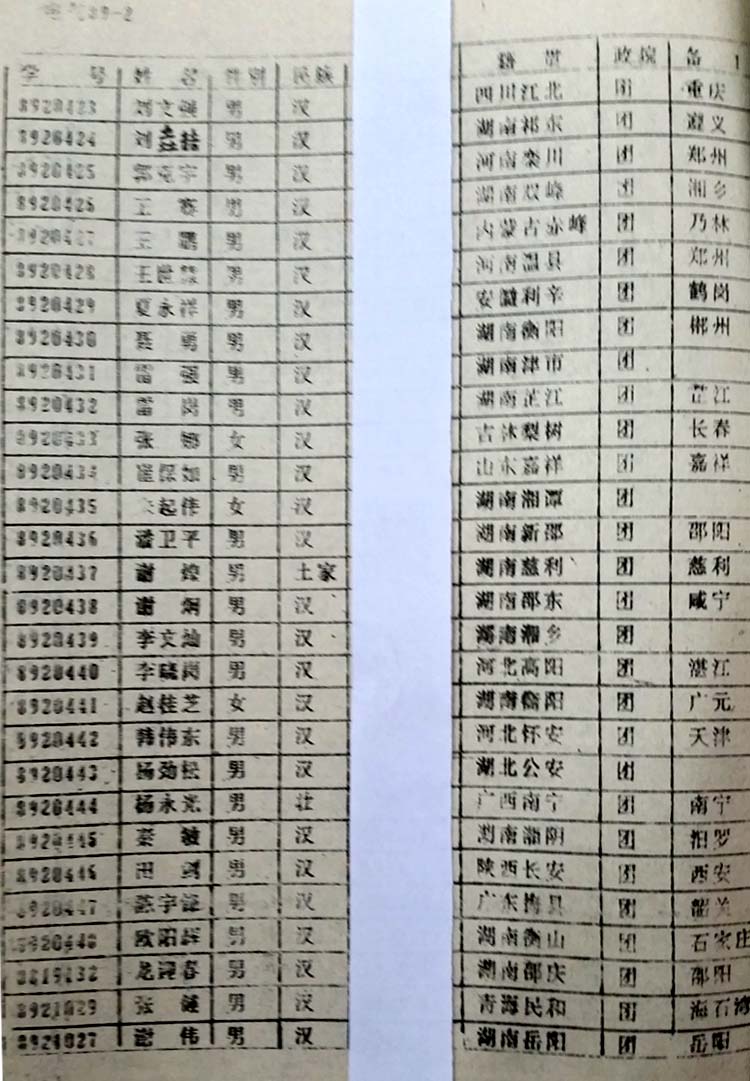 电气89-2
学 号 姓 名 性别 民族 籍 贯 政貌 备 1
8920423 刘文 男 汉 四川江北 团 重庆
8920424 刘 男 汉 湖南祁东 团 遵义
8920425 男 汉 河南栾川 团 郑州
8920426 王 赛 男 汉 湖南双峰 团 湘乡
8920427 王 鹏 男 汉 内蒙古赤峰 团 乃林
8920428 王世 男 汉 河南温县 团 郑州
8920429 夏永祥 男 汉 安徽利辛 团 鹤岗
8920430 聂 勇 男 汉 湖南衡阳 团 郴州
8920431 雷 强 男 汉 湖南津市 团
8920432 雷 岗 男 汉 湖南芷江 团 芷江
8920433 张 娜 女 汉 吉林梨树 团 长春
8920434 崔保如 男 汉 山东嘉祥 团 嘉祥
8920435 起伟 女 汉 湖南湘潭 团
8920436 潘卫平 男 汉 湖南新邵 团 邵阳
8920437 谢 煌 男 土家 湖南慈利 团 慈利
8920438 谢 炯 男 汉 湖南邵东 团 咸宁
8920439 李文灿 男 汉 湖南湘乡 团
8920440 李晓岗 男 汉 河北高阳 团 湛江
8920441 赵桂芝 女 汉 湖南衡阳 团 广元
8920442 韩伟东 男 汉 河北怀安 团 天津
8920443 杨劲松 男 汉 湖北公安 团
8920444 杨永光 男 壮 广西南宁 团 南宁
8920445 秦 敏 男 汉 湖南湘阴 团 汨罗
8920446 田 剑 男 汉 陕西长安 团 西安
8920447 宇 男 汉 广东梅县 团 韶关
8920448 欧阳辉 男 汉 湖南衡山 团 石家庄
龙 春 男 汉 湖南邵 团 邵阳
8921029 张 健 男 汉 青海民和 团 海石湾
8921027 谢 伟 男 汉 湖南岳阳 团 岳阳